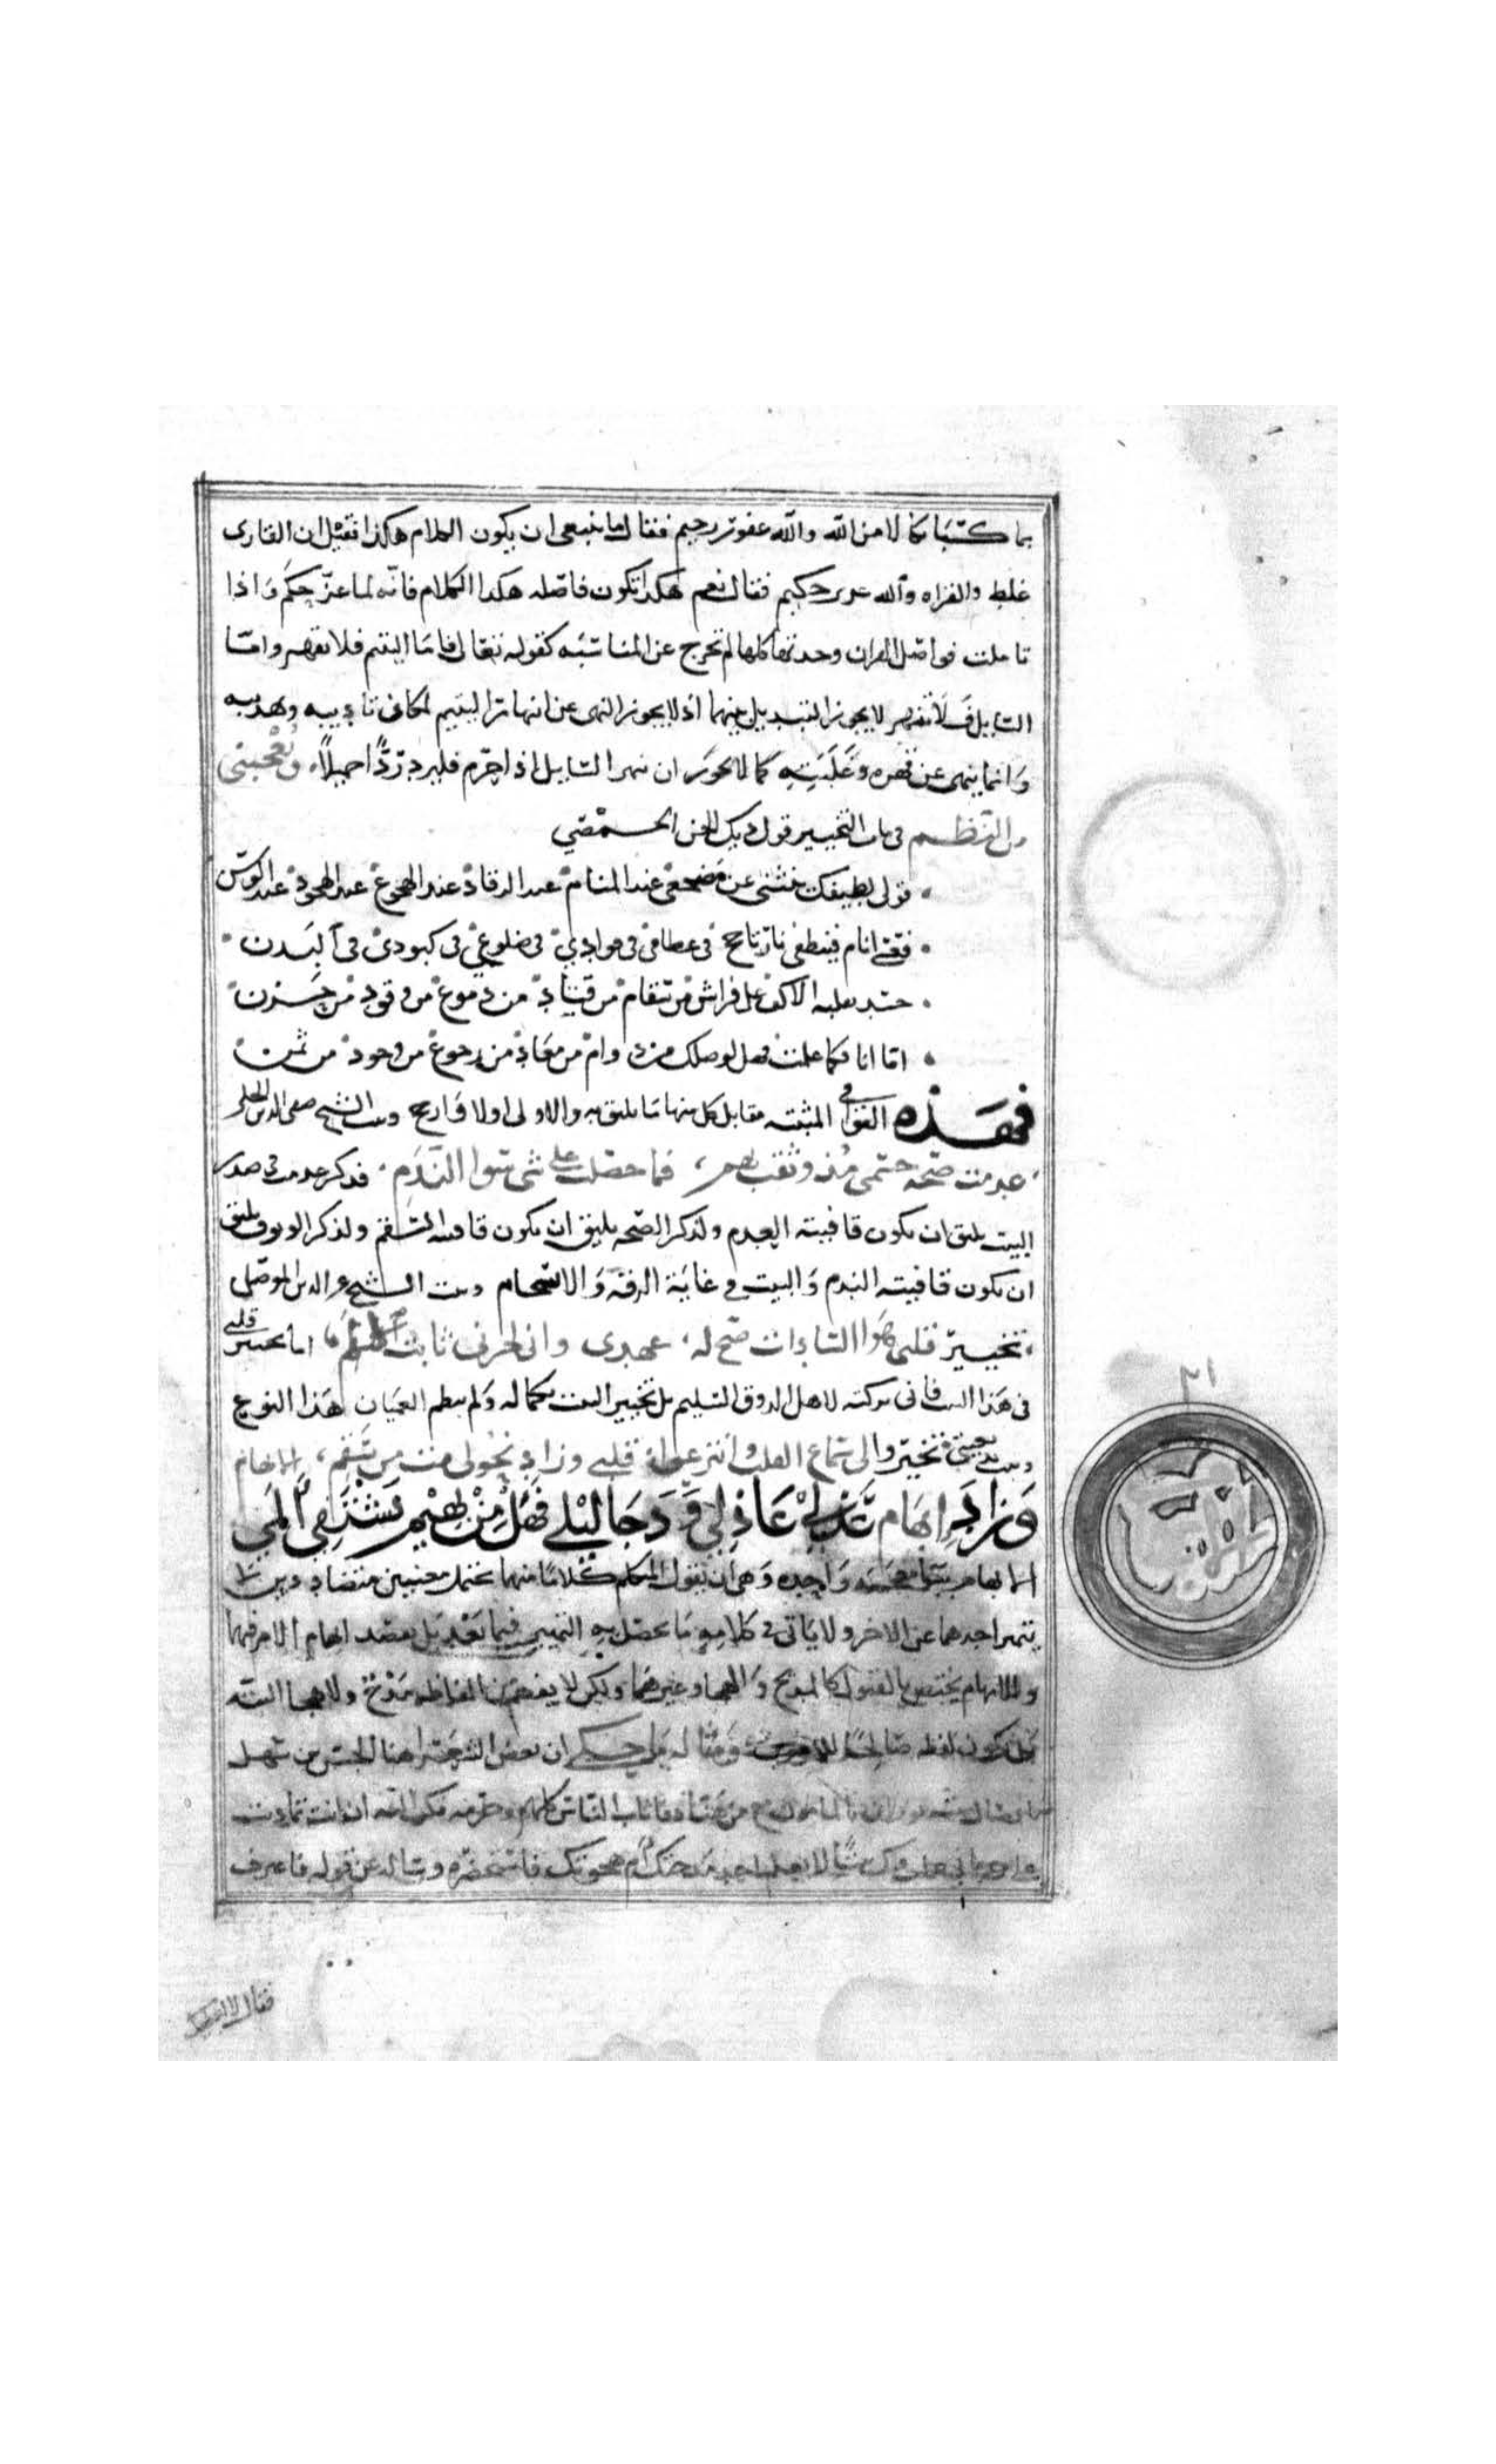 بما كسبا نكالا من الله والله غفور رحيم فقال ما ينبغى ان يكون الكلام هكذا فقيل ان القارى
غلط والقراه والله عزيز حكيم فقال نعم هكذا تكون فاصله هكذا الكلام فانه لما عز حكم واذا
تاملت فواصل القران وجدتها كلها لم تخرج عن المناسبه كقوله تعالى فاما اليتيم فلا تقهر واما
السايل فلا تنهر لا يجوز التبديل بينهما اذ لا يجوز النهى عن انتهار اليتيم لمكان تاديبه وتهذيبه
وانما ينهى عن قهره وغلبته كما لا يجوز ان ينهر السايل اذا حرم فليرد ردا جميلا ويعجبنى
من النظم فى باب التخيير قول ديك الجن الحمصي
قولى لطيفك ينثنى عن مضجعى عند المنام عند الرقاد عند الهجوع عند الهجود عند الوسن
فعسى انام فينطفى نار تاجج فى عظامى فى فوادي فى ضلوعي فى كبودى فى البدن
جسد تقلبه الاكف على فراش من سقام من قتاد من دموع من وقود من حزن
اما انا فكما علمت فهل لوصلك من دوام من معاد من رجوع من وجود من ثمن
فهذه القوافى المثبته مقابل كل منها ما يليق به والاولى اولا وارجح وبيت الشيخ صفى الدين الحلى
عدمت صحه جسمى مذ وثقت بهم فما حصلت على شى سوا الندم فذكر عدمت فى صدر
البيت يليق ان يكون قافيته العدم ولذكر الصحه يليق ان يكون قافيته السقم ولذكر الوثوق يليق
ان يكون قافيته الندم والبيت فى غاية الرقه والانسجام وبيت الشيخ عز الدين الموصلى
تخيير قلبى هوا السادات صح له عهدى وانى لحزنى ثابت الالم اما تخيير قلبى
فى هذا البيت فانى تركته لاهل الذوق السليم بل تخيير البيت بكماله ولم ينظم العميان هذا النوع
وبيت بديعيتى تخيروا لى سماع العذل وانتزعوا قلبى وزاد نحولى مت من سقم الابهام
وزاد ابهام عذلى عاذلى ودجا ليلى فهل من بهيم يشتفى المى
الابهام بباء موحده وهو ان يقول المتكلم كلاما مبهما يحتمل معنيين متضادين لا
يتميز احدهما عن الاخر ولا ياتى فى كلامه ما يحصل به التمييز فيما بعد بل يقصد ابهام الامر فيهما
والابهام يختص بالفنون كالمديح والهجا وغيرهما ولكن لا يفهم من الفاظه مدح ولا هجا البته
بل يكون لفظه صالحا للامرين ومثاله ما حكي ان بعض الشعرا هنا الحسن بن سهل
من هناه فاثاب الناس كلهم وحرمه فكتب اليه ان انت تماديت
على حرمانى عملت فيك بيتا لا يعلم احد مدحتك ام هجوتك فاستحضره وساله عن قوله فاعترف
فقال لا